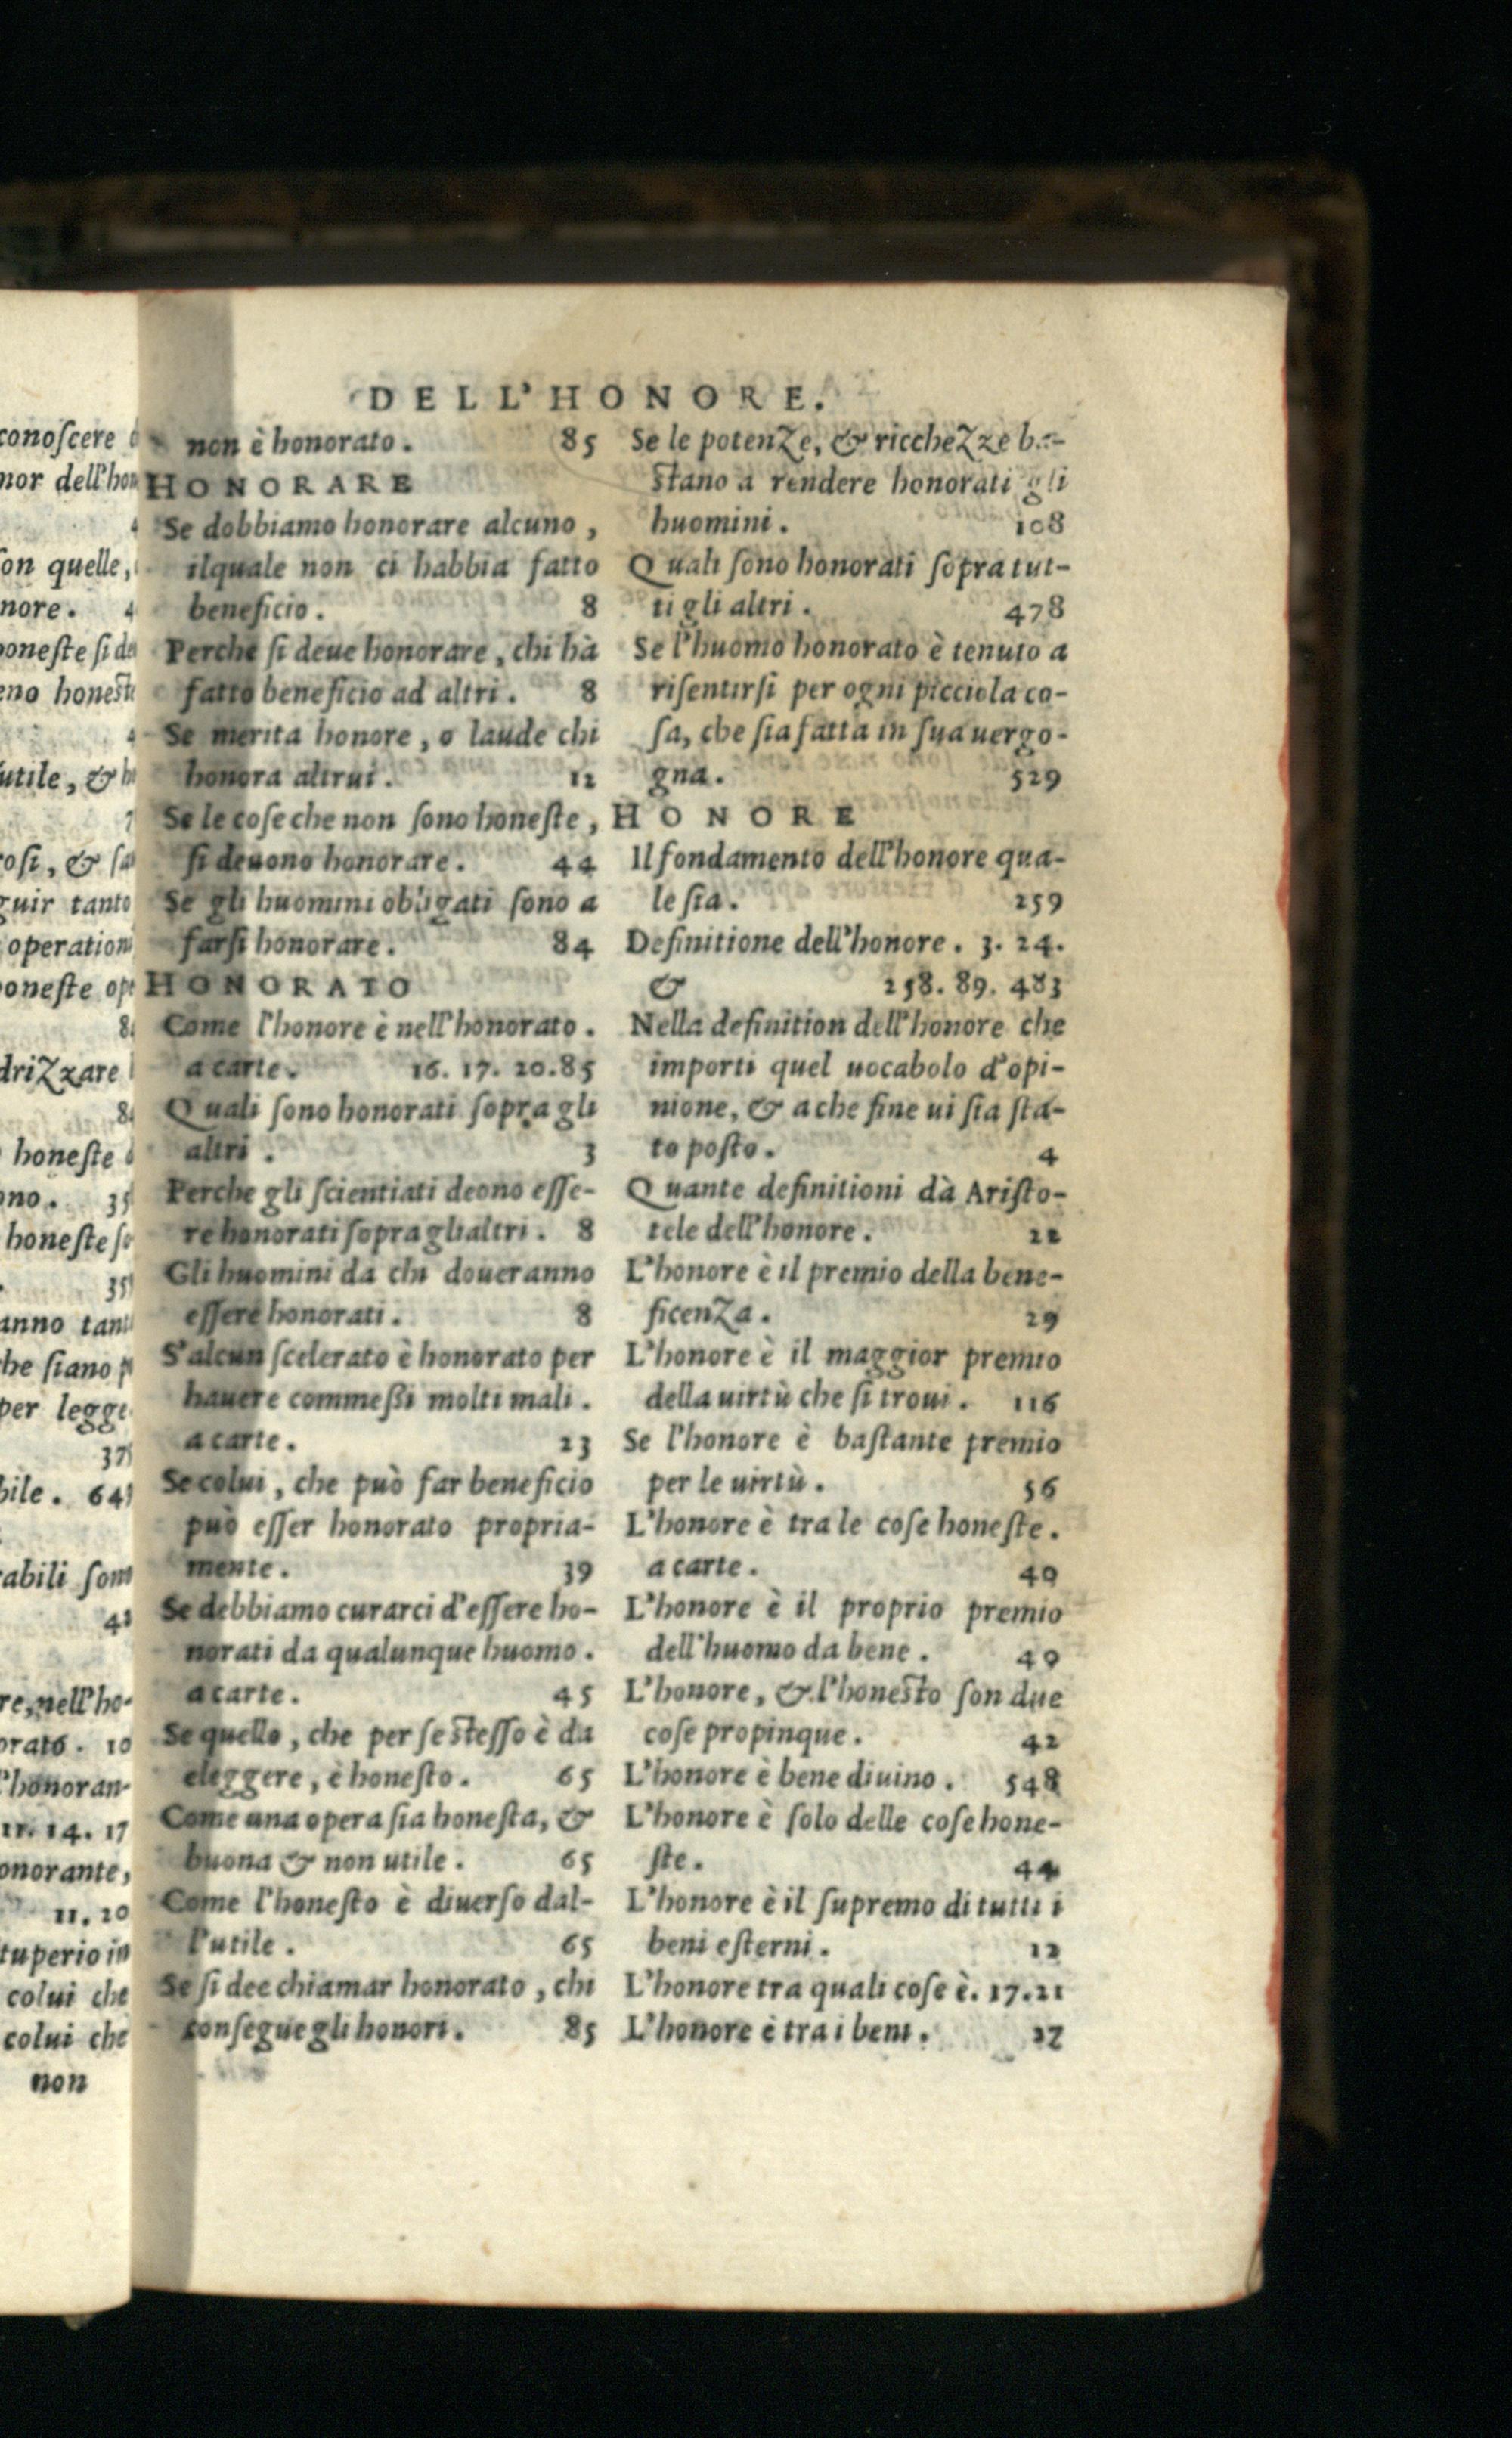 DELL'HONORE.
non è honorato. 85
HONORARE
Se dobbiamo honorare alcuno,
ilquale non ci habbia fatto
beneficio. 8
Perche si deue honorare, chi hà
fatto beneficio ad altri. 8
Se merita honore, o laude chi
honora altrui. 12
Se le cose che non sono honeste,
si deuono honorare. 44
Se gli huomini obligati sono a
farsi honorare. 84
HONORATO
Come l'honore è nell'honorato.
a carte. 16. 17. 20. 85
Quali sono honorati sopra gli
altri. 3
Perche gli scientiati deono esse-
re honorati sopra glialtri. 8
Gli huomini da chi doueranno
essere honorati. 8
S'alcun scelerato è honorato per
hauere commeßi molti mali.
a carte. 23
Se colui, che può far beneficio
può esser honorato propria-
mente. 39
Se debbiamo curarci d'essere ho-
norati da qualunque huomo.
a carte. 45
Se quello, che per se stesso è da
eleggere, è honesto. 65
Come una opera sia honesta, &
buona & non utile. 65
Come l'honesto è diuerso dal-
l'utile. 65
Se si dee chiamar honorato, chi
consegue gli honori. 85
Se le potenze, & ricchezze ba-
stano a rendere honorati gli
huomini. 108
Quali sono honorati sopra tut-
ti gli altri. 478
Se l'huomo honorato è tenuto a
risentirsi per ogni picciola co-
sa, che sia fatta in sua uergo-
gna. 529
HONORE
Il fondamento dell'honore qua-
le sia. 259
Definitione dell'honore. 3. 24.
& 258. 89. 483
Nella definition dell'honore che
importi quel uocabolo d'opi-
nione, & a che fine ui sia sta-
to posto. 4
Quante definitioni dà Aristo-
tele dell'honore. 22
L'honore è il premio della bene-
ficenza. 29
L'honore è il maggior premio
della uirtù che si troui. 116
Se l'honore è bastante premio
per le uirtù. 56
L'honore è tra le cose honeste.
a carte. 40
L'honore è il proprio premio
dell'huomo da bene. 40
L'honore, & l'honesto son due
cose propinque. 42
L'honore è bene diuino. 548
L'honore è solo delle cose hone-
ste. 44
L'honore è il supremo di tutti i
beni esterni. 12
L'honore tra quali cose è. 17. 21
L'honore è tra i beni. 17